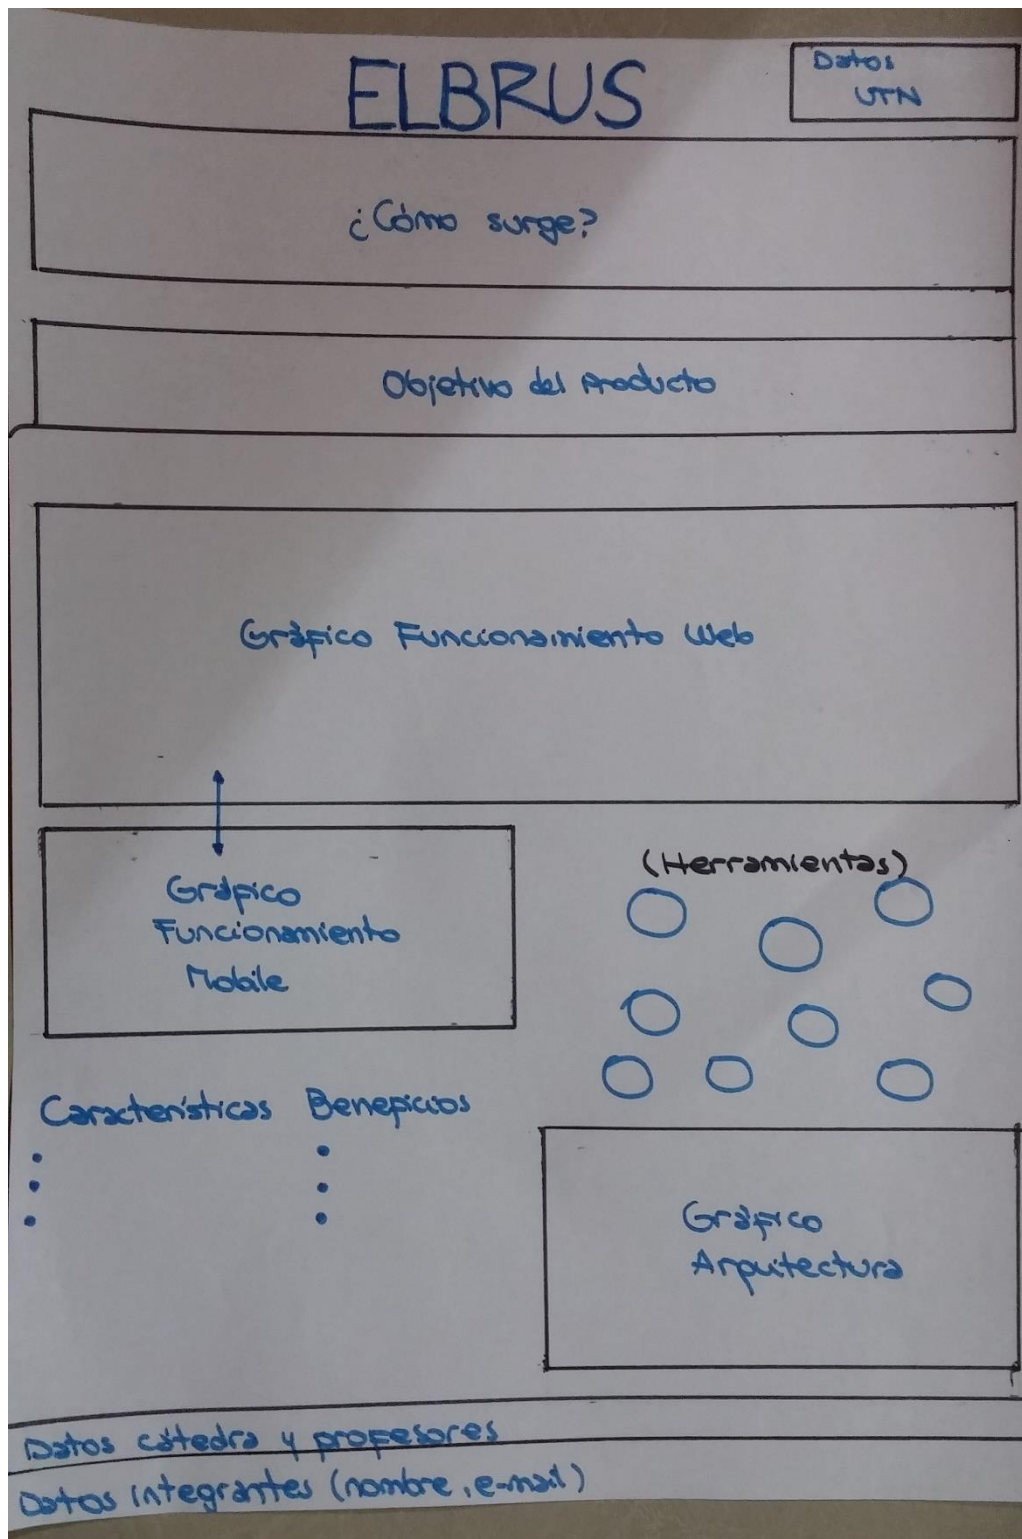 ELBRUS
Datos
UTN
¿Cómo surge?
Objetivo del Producto
Gráfico Funcionamiento Web
Gráfico
Funcionamiento
Mobile
(Herramientas)
Características Beneficios
Gráfico
Arquitectura
Datos cátedra y profesores
Datos integrantes (nombre, e-mail)